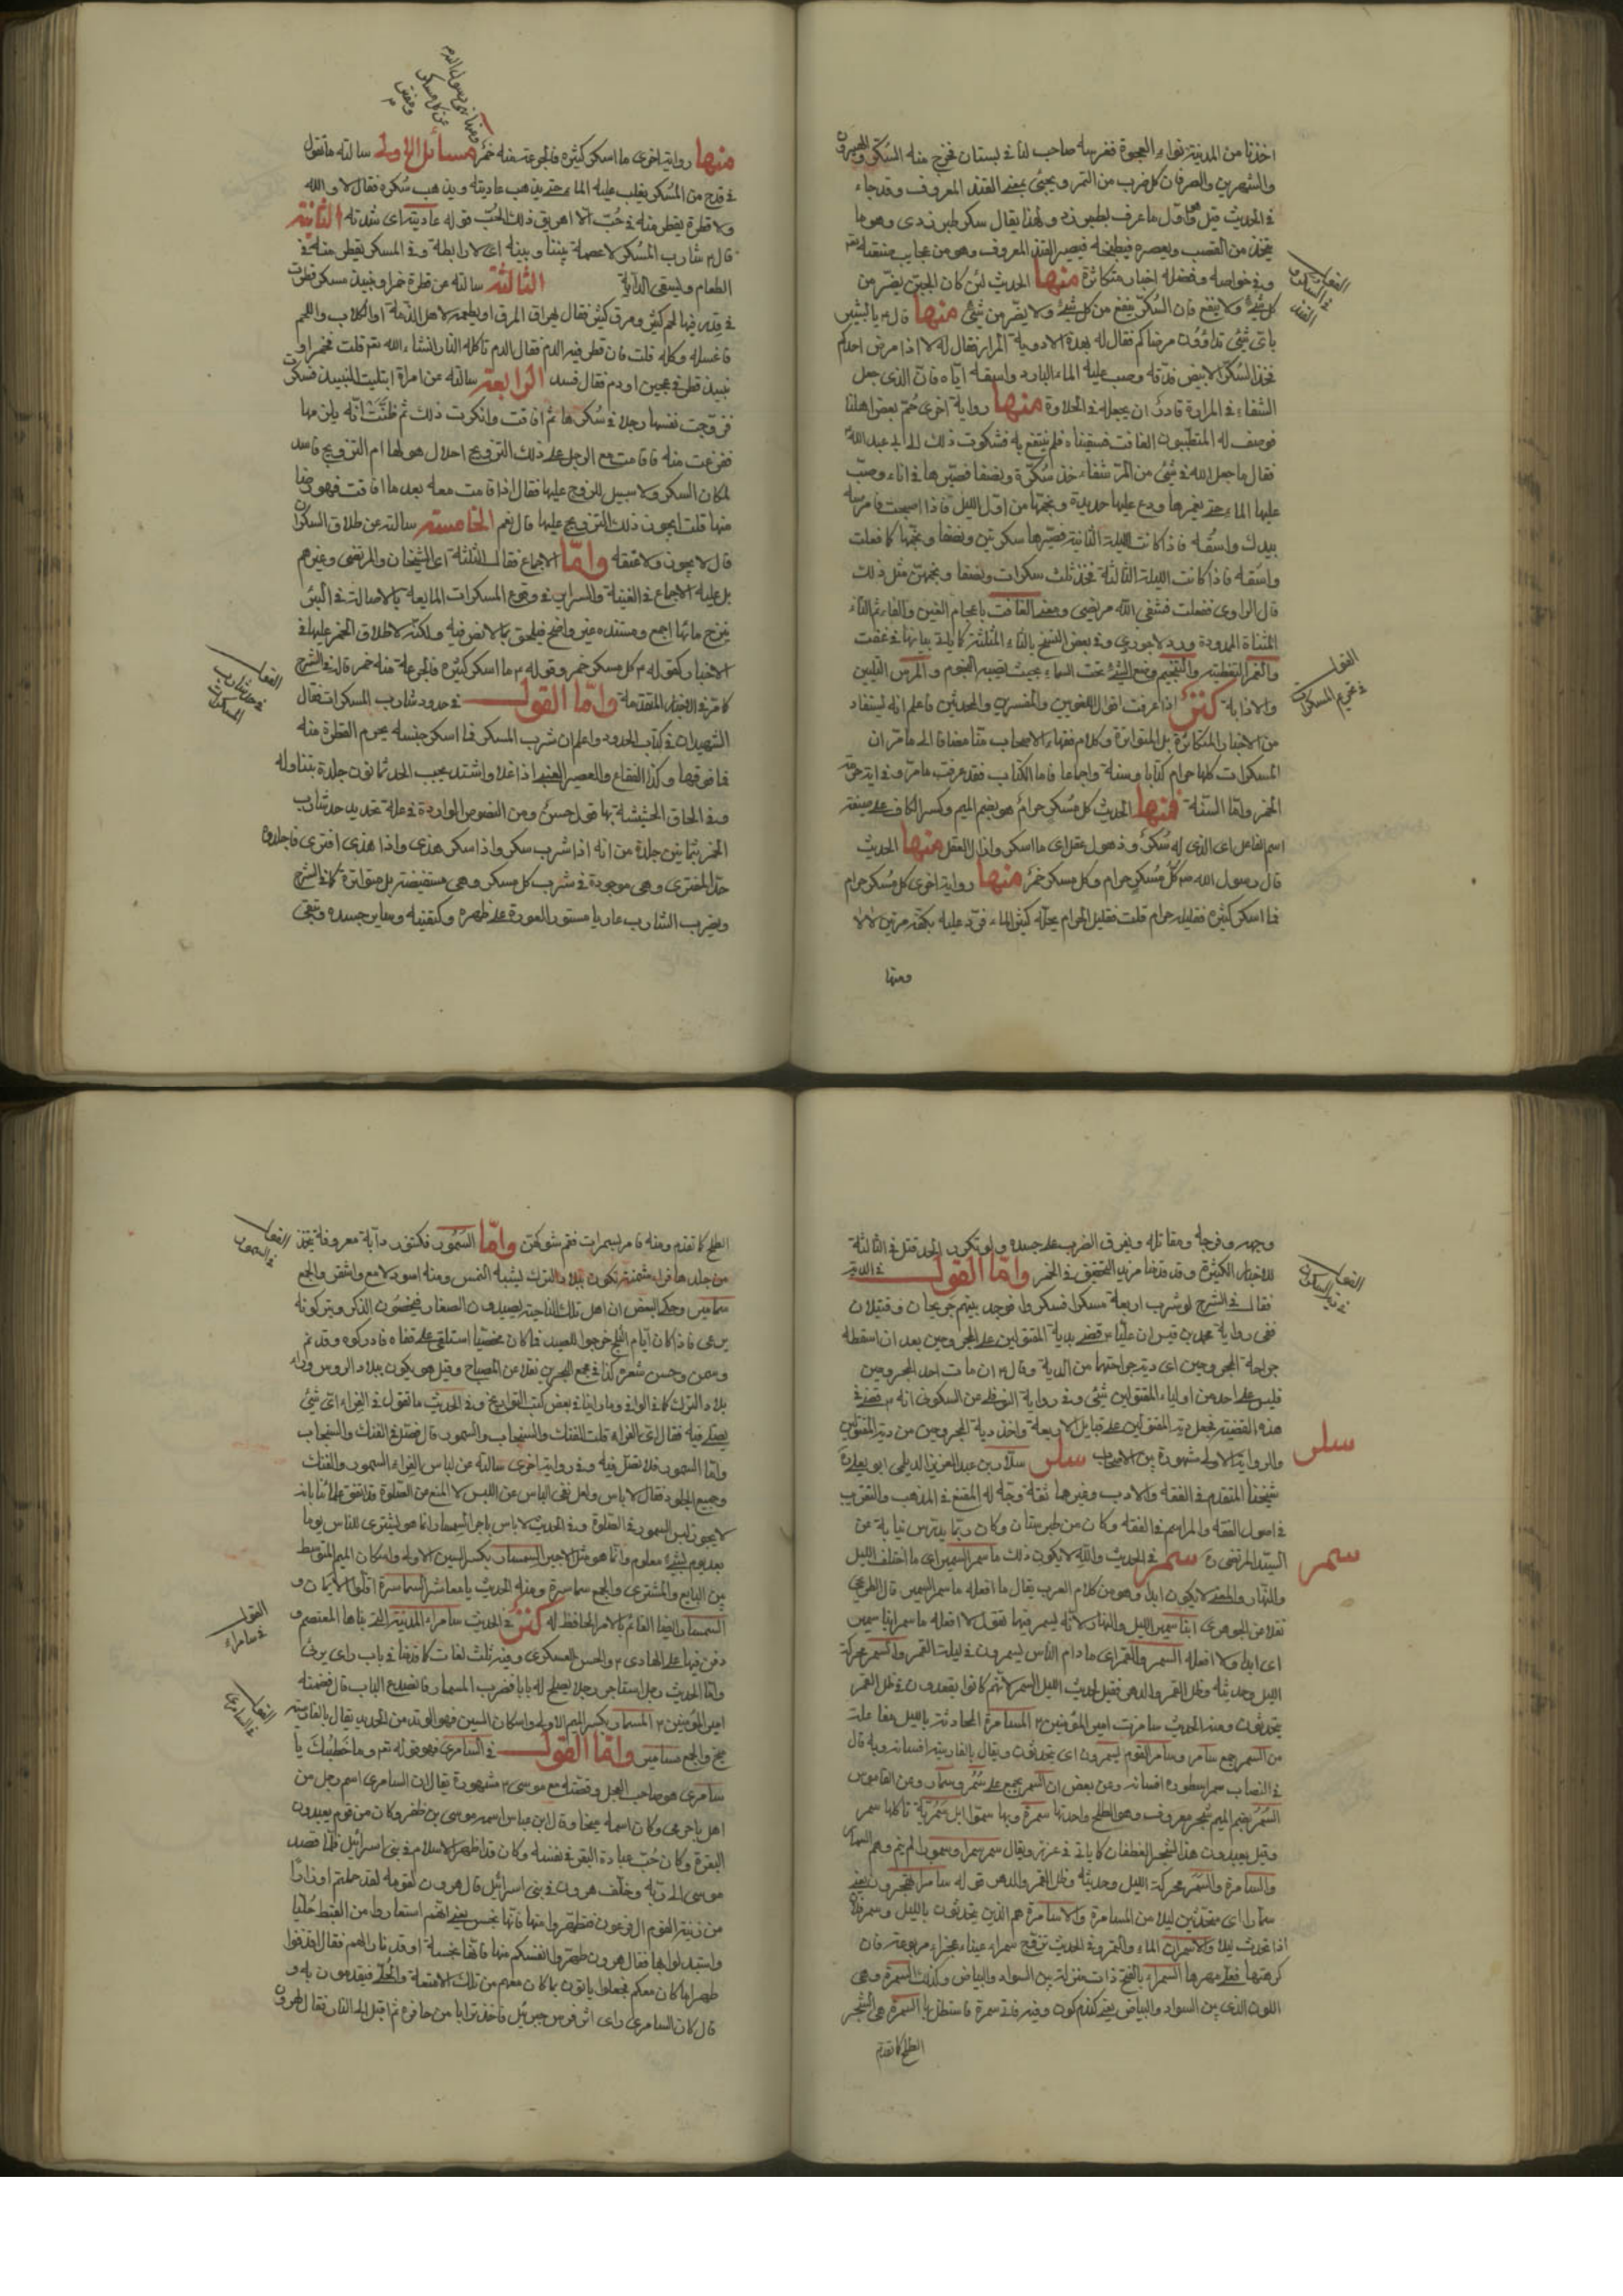 اخذنا من المدينة نواء العجوة فغرسه صاحب لنا في بستان فخرج منه السكر
والشهريز والصرفان كل ضرب من التمر ويجئ بمعنى القند المعروف وقد جاء
في الحديث قيل هو اول ما عرف بطبرزد ولهذا يقال سكر طبرزدى وهو ما
يتخذ من القصب ويعصره فيطبخه فيصير القند المعروف وهو من عجايب
وفي خواصه وفضله اخبار متكاثرة منها الحديث لئن كان الجبن يضر من
كل شئ ولا ينفع فان السكر ينفع من كل شئ ولا يضر من شئ منها قال يا بشير
باى شئ تداوون مرضاكم فقال له بهذه الادوية المرار فقال له لا اذا مرض احدكم
فخذ السكر الابيض فدقه وصب عليه الماء البارد واسقه اياه فان الذى جعل
الشفاء في المرارة قادر ان يجعله في الحلاوة منها رواية اخرى حم بعض اهلنا
فوصف له المتطببون الغافت فسقيناه فلم ينتفع به فشكوت ذلك الى ابى عبد الله
فقال ما جعل الله في شئ من المر شفاء خذ سكرة ونصفا فصيرها في اناء وصب
عليها الماء حتى يغمرها وضع عليها حديدة ونجمها من اول الليل فاذا اصبحت فامرسها
بيدك واسقه فاذا كانت الليلة الثانية فصيرها سكرتين ونصفا ونجمها كما فعلت
واسقه فاذا كانت الليلة الثالثة فخذ ثلث سكرات ونصفا ونجمهن مثل ذلك
قال الراوى ففعلت فشفى الله مريضى ومعنى الغافت باعجام الغين والفاء ثم التاء
المثناة الممدودة ورد لاجوردى وفي بعض النسخ بالثاء المثلثة كما ياتى بيانها في غفث
والغمر التغطية والتنجيم وضع الشئ تحت السماء بحيث يصيبه النجوم والمرس التليين
والاذابة كنز اذا عرفت اقوال اللغويين والمفسرين والمحدثين فاعلم انه يستفاد
من الاخبار المتكاثرة بل المتواترة وكلام فقهاء الاصحاب مضافا الى ما مر ان
المسكرات كلها حرام كتابا وسنة واجماعا فاما الكتاب فقد عرفت ما مر
الخمر واما السنة فمنها الحديث كل مسكر حرام هو بضم الميم وكسر الكاف على صيغة
اسم الفاعل اى الذى له سكر وذهول عقل اى ما اسكر وازال العقل منها الحديث
قال رسول الله ص كل مسكر حرام وكل مسكر خمر منها رواية اخرى كل مسكر حرام
فما اسكر كثيره فقليله حرام قلت فقليل الحرام يحله كثير الماء فرد عليه بكفه مرتين لا لا
ومنها
القول في السكر
القول في تحريم المسكرات
منها رواية اخرى ما اسكر كثيره فالجرعة منه خمر مسائل الاولى سالته ما تقول
في قدح من المسكر يغلب عليه الماء حتى يذهب عاديته ويذهب سكره فقال لا والله
ولا قطرة يقطر منه في حب الا اهريق ذلك الحب قوله عاديته اى شدته الثانية
قال شارب المسكر لا عصمة بيننا وبينه اى لا رابطة وفي المسكر يقطر منه في
الطعام ويسقى الدابة الثالثة سالته عن قطرة خمر او نبيذ مسكر قطرت
في قدر فيها لحم كثير ومرق كثير فقال يهراق المرق او يطعمه لاهل الذمة او الكلاب واللحم
فاغسله وكله قلت فان قطر فيه الدم فقال الدم تاكله النار انشاء الله قلت فخمر او
نبيذ قطر في عجين او دم فقال فسد الرابعة سالته عن امراة ابتليت بالنبيذ فسكرت
فزوجت نفسها رجلا في سكرها ثم افاقت وانكرت ذلك ثم ظنت انه يلزمها
ففزعت منه فاقامت مع الرجل على ذلك التزويج احلال هو لها ام التزويج فاسد
لمكان السكر ولا سبيل للزوج عليها فقال اذا قامت معه بعد ما افاقت فهو رضا
منها قلت ايجوز ذلك التزويج عليها قال نعم الخامسة سالته عن طلاق السكران
قال لا يجوز ولا عتقه واما الاجماع فقال الثلثة اى الشيخان والمرتضى وغيرهم
بل عليه الاجماع في الغنية والسرائر في المسكرات المايعة بالاصالة في البئر
ينزح مائها اجمع ومستنده غير واضح فيلحق بما لا نص فيه ولكنه لاطلاق الخمر عليها في
الاخبار كقوله كل مسكر خمر وقوله ما اسكر كثيره فالجرعة منه خمر قاله في الشرح
كما مر في الاخبار المتقدمة واما القول في حدود شارب المسكرات فقال
الشهيدان في كتاب الحدود واعلم ان شرب المسكر فما اسكر جنسه يحرم القطرة منه
فما فوقها وكذا الفقاع والعصير العنبى اذا غلا واشتد يجب الحد ثمانون جلدة بتناوله
وفي الحاق الحشيشة بها قول حسن ومن النصوص الواردة في علة تحديد حد شارب
الخمر بثمانين جلدة من انه اذا شرب سكر واذا سكر هذى واذا هذى افترى فاجلدوه
حد المفترى وهى موجودة في شرب كل مسكر وهى مستفيضة بل متواترة كما في الشرح
ويضرب الشارب عاريا مستور العورة على ظهره وكتفيه وساير جسده ويتقى
القول في حد شارب المسكرات
وجهه وفرجه ومقاتله ويفرق الضرب على جسده ولو تكرر الحد قتل في الثالثة
للاخبار الكثيرة وقد قدمنا مزيد التحقيق في الخمر واما القول في الدية
فقال في الشرح لو شرب اربعة مسكرا فسكروا فوجد بينهم جريحان وقتيلان
ففى رواية محمد بن قيس ان عليا قضى بدية المقتولين على المجروحين بعد ان اسقط
جراحة المجروحين اى دية جراحتهما من الدية وقال ان مات احد المجروحين
فليس على احد من اولياء المقتولين شئ وفي رواية النوفلى عن السكونى انه قضى في
هذه القضية بجعل دية المقتولين على قبايل الاربعة واخذ دية المجروحين من دية المقتولين
والرواية الاولى مشهورة بين الاصحاب سلر سلار بن عبد العزيز الديلمى ابو يعلى
شيخنا المتقدم في الفقه والادب وغيرهما ثقة وجه له المقنع في المذهب والتقريب
في اصول الفقه والمراسم في الفقه وكان من طبرستان وكان ربما يدرس نيابة عن
السيد المرتضى سمر في الحديث والله لا يكون ذلك ما سمر السمير اى ما اختلف الليل
والنهار والمعنى لا يكون ابدا وهو من كلام العرب يقال ما افعله ما سمر السمير قال الطريحى
نقلا عن الجوهرى ابنا سمير الليل والنهار لانه يسمر فيهما تقول لا افعله ما سمر ابنا سمير
اى ابدا ولا افعله السمر والقمر اى ما دام الناس يسمرون في ليلة القمر والسمر محركة
الليل وحديثه وظل القمر والدهر فقيل لحديث الليل السمر لانهم كانوا يقعدون في ظل القمر
يتحدثون ومنه الحديث سامرت امير المؤمنين المسامرة المحادثة بالليل مفاعلة
من السمر جمع سامر وسامر القوم يسمرون اى يتحدثون ويقال بالفارسية افسانه وبه قال
في النصاب سمر اسطوره افسانه وعن بعض ان السمر يجمع على سمر وسمار وعن القاموس
السمر بضم الميم شجر معروف وهو الطلح واحدتها سمرة وبها سموا ابل سمرية تاكلها سمر
وقيل يعبدون هذا الشجر الغطفان كما ياتى في عزز ويقال سمر سمرا وسمورا لم ينم وهم السمار
والسامرة والسمر محركة الليل وحديثه وظل القمر والدهر قوله سامرا تهجرون يعنى
سمارا اى متحدثين ليلا من المسامرة والاسامرة هم الذين يتحدثون بالليل وسمر فلان
اذا تحدث ليلا والاسمران الماء والبر وفي الحديث تزوج سمراء عيناء عجزاء مربوعة فان
كرهتها فعلى مهرها السمراء بالفتح ذات منزلة بين السواد والبياض وكذلك السمرة وهى
اللون الذى بين السواد والبياض يعنى كندم كون وفيه فاستظل بها السمرة هى شجر
الطلح كما تقدم
القول في دية السكران
سلر
سمر
الطلح كما تقدم ومنه فامر بسمرات فقم شوكهن واما السمور فكتنور دابة معروفة يتخذ
من جلدها فراء مثمنة تكون ببلاد الترك يشبه النمس ومنه اسود لامع واشقر والجمع
سمامير وحكى البعض ان اهل تلك الناحية يصيدون الصغار فيخصون الذكر ويتركونه
يرعى فاذا كان ايام الثلج خرجوا للصيد فما كان مخصيا استلقى على قفاه فادركوه وقد
سمن وحسن شعره كذا في مجمع البحرين نقلا عن المصباح وقيل هو يكون ببلاد الروس وراء
بلاد الترك كما في الوافى وما راينا في بعض كتب التواريخ وفي الحديث ما تقول في الفراء اى شئ
يصلى فيه فقال اى الفراء قلت الفنك والسنجاب والسمور قال فصل في الفنك والسنجاب
واما السمور فلا تصل فيه وفي رواية اخرى سالته عن لباس الفراء السمور والفنك
وجميع الجلود فقال لا باس ولعل نفى الباس عن اللبس لا المنع عن الصلوة
لا يجوز لبس السمور في الصلوة وفي الحديث لا باس باجر السمسار انما هو يشترى للناس يوما
بعد يوم بشئ معلوم وانما هو مثل الاجير السمسار بكسر السين الاولى واسكان الميم المتوسط
بين البايع والمشترى والجمع سماسرة ومنه الحديث يا معاشر السماسرة اقلوا الايمان و
السمسار ايضا القائم بالامر الحافظ له كنز في الحديث سامراء المدينة التى بناها المعتصم و
دفن فيها على الهادى والحسن العسكرى وفيه ثلث لغات كما قدمنا في باب راى يرئ
واما الحديث رجل استاجر رجلا يصلح له بابا فضرب المسمار فانصدع الباب قال فضمنه
امير المؤمنين المسمار بكسر الميم الاولى واسكان السين فهو الوتد من الحديد يقال بالفارسية
ميخ والجمع مسامير واما القول في السامرى فهو قوله وما خطبك يا
سامرى هو صاحب العجل وقصته مع موسى مشهورة يقال ان السامرى اسم رجل من
اهل باجرمى وكان اسمه ميخا وقال ابن عباس اسمه موسى بن ظفر وكان من قوم يعبدون
البقرة وكان حب عبادة البقر في نفسه وكان قد اظهر الاسلام في بنى اسرائيل فلما قصد
موسى الى ربه وخلف هرون في بنى اسرائيل قال هرون لقومه لقد حملتم اوزارا
من زينة القوم ال فرعون فتطهروا منها فانها نجس يعنى انهم استعاروا من القبط حليا
واستبدلوا بها فقال هرون طهروا انفسكم منها فانها نجسة اوقد نارا لهم فقال اقذفوا
ما كان معكم فجعلوا ياتون بما كان معهم من تلك الامتعة والحلى فيقذفون به و
قال كان السامرى راى اثر فرس جبرئيل فاخذ ترابا من حافره ثم اقبل الى النار فقال لهرون
القول في السمور
القول في سامراء
القول في السامرى